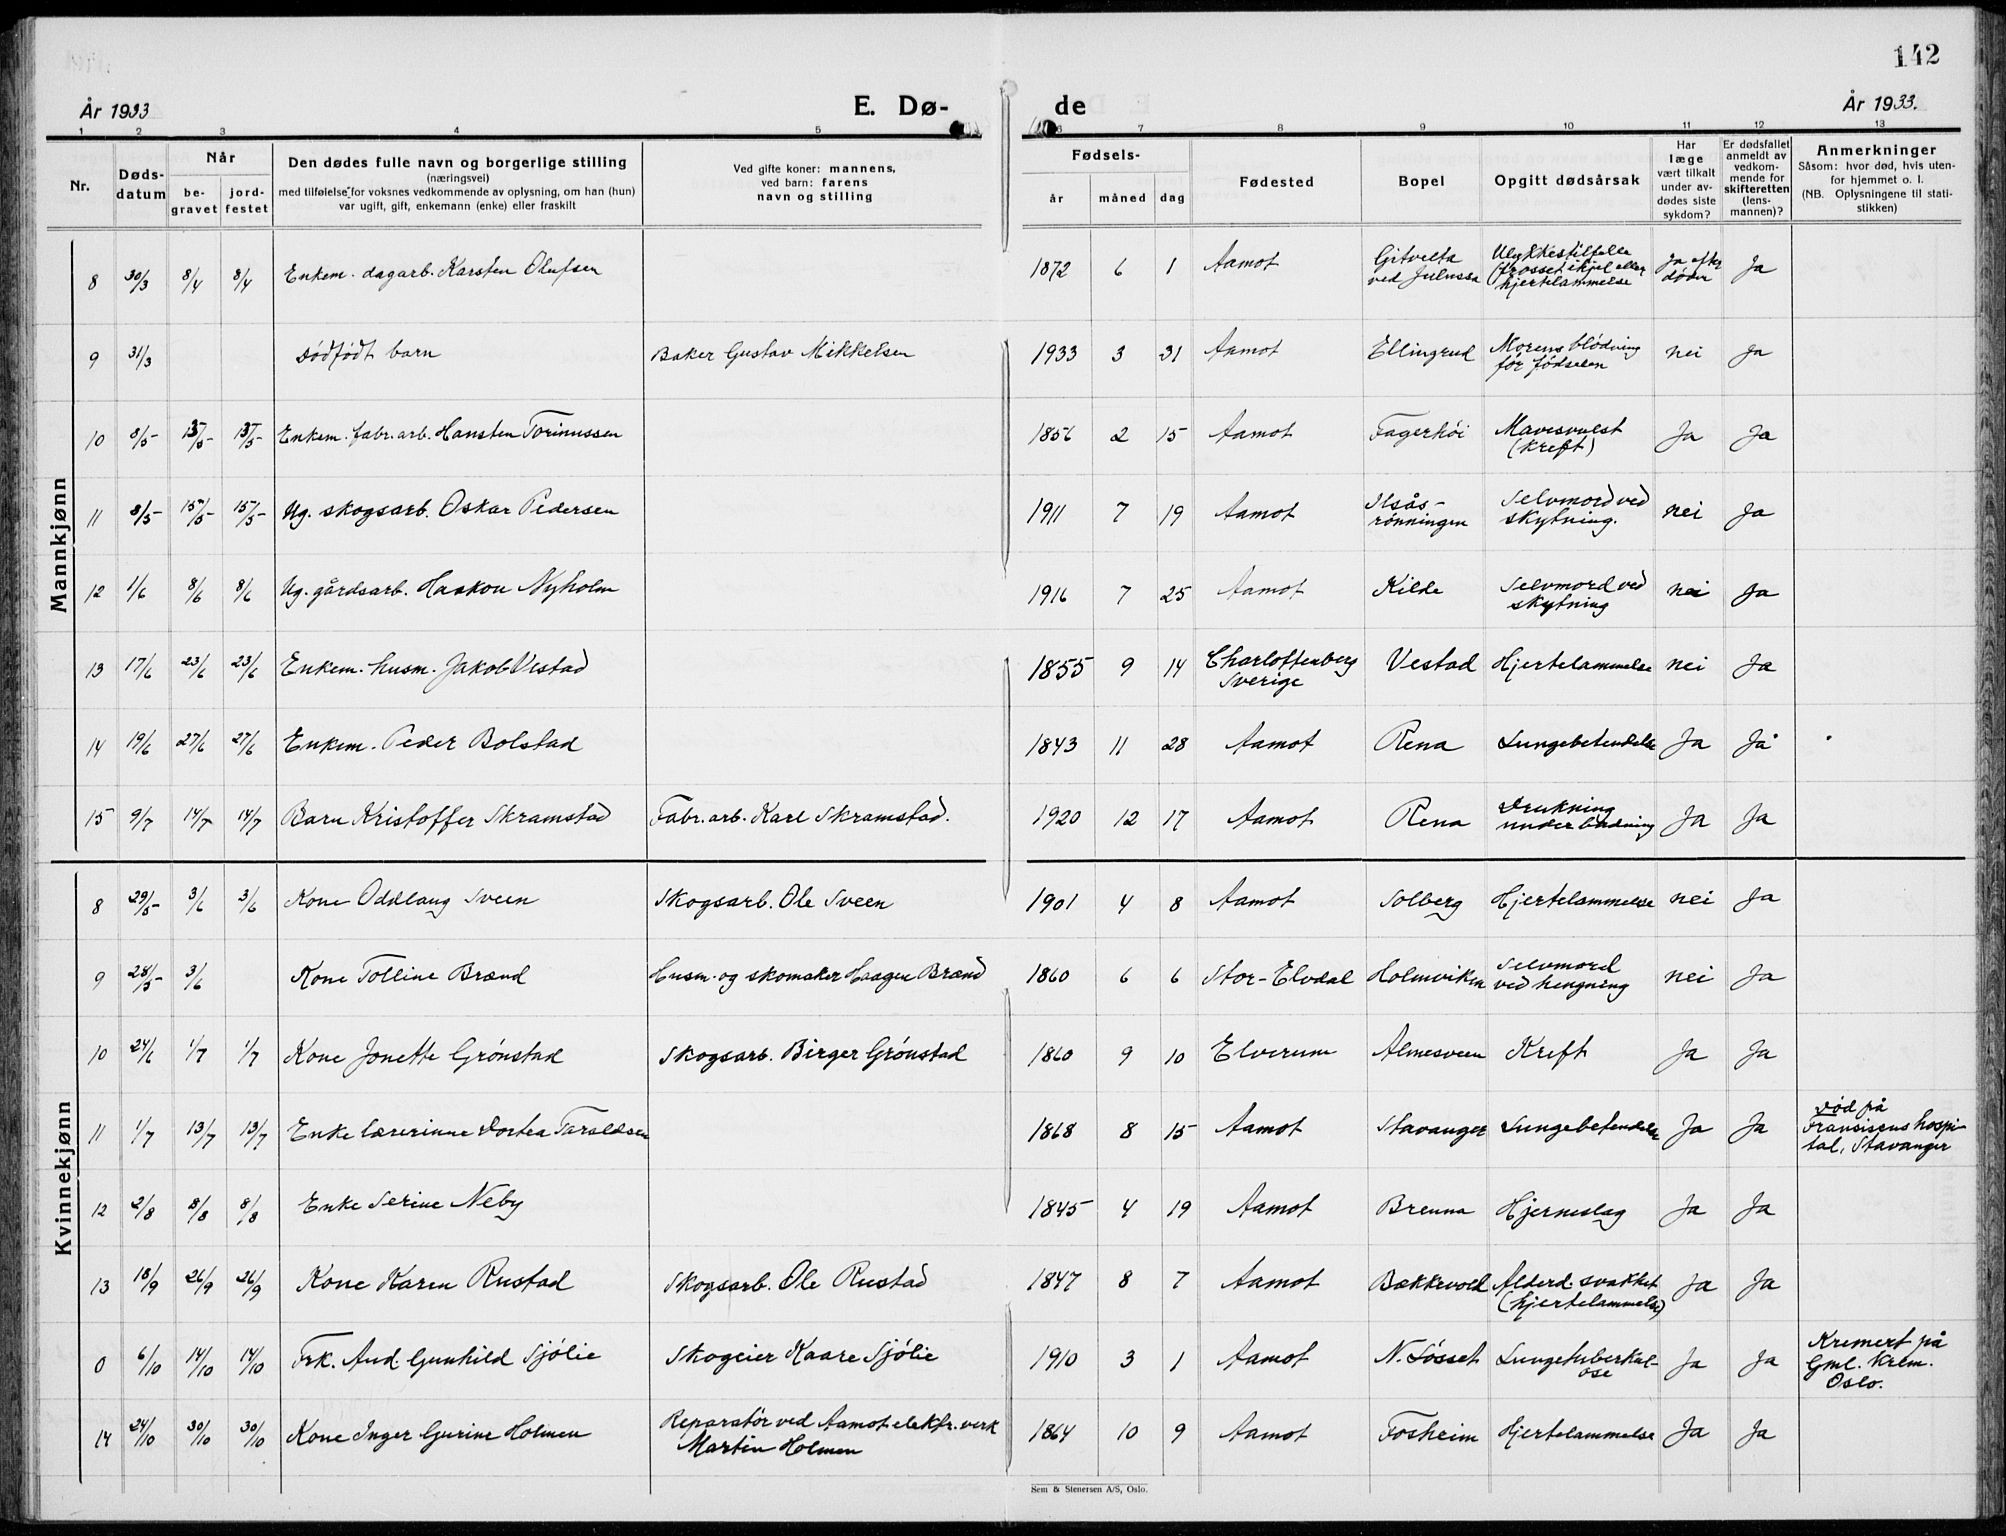 142
År 1933
E. Dø-
de
År 1933.
1 2 3 4 5 6 7 8 9 10 11 12 13
Nr.
Døds-
datum
Når
be-
gravet
jord-
festet
Den dødes fulle navn og borgerlige stilling
(næringsvei)
med tilføielse for voksnes vedkommende av oplysning, om han (hun)
var ugift, gift, enkemann (enke) eller fraskilt
Ved gifte koner: mannens,
ved barn: farens
navn og stilling
Fødsels-
år måned dag
Fødested
Bopel
Opgitt dødsårsak
Har
læge
vært tilkalt
under av-
dødes siste
sykdom?
Er dødsfallet
anmeldt av
vedkom-
mende for
skifteretten
(lens-
mannen)?
Anmerkninger
Såsom: hvor død, hvis uten-
for hjemmet o. l.
(NB. Oplysningene til stati-
stikken)
Mannkjønn
8 30/3 8/4 8/4 Enkem. dagarb. Karsten Olufsen 1872 6 1 Aamot Gitvelta
ved Julussa
Ulykkestilfelle
(frosset ihjel eller
hjertelammelse
Ja efter
døden
Ja
9 31/3 Dødfødt barn Baker Gustav Mikkelsen 1933 3 31 Aamot Ellingrud Morens blødning
før fødselen
nei Ja
10 8/5 13/5 13/5 Enkem. fabr.arb. Hansten Torinussen 1856 2 15 Aamot Fagerhöi Mavesvulst
(Kreft)
Ja Ja
11 8/5 15/5 15/5 Ug. skogsarb. Oskar Pedersen 1911 7 19 Aamot Ilsås-
rönningen
Selvmord ved
skytning.
nei Ja
12 1/6 8/6 8/6 Ug. gårdsarb. Haakon Nyholm 1916 7 25 Aamot Kilde Selvmord ved
skytning
nei Ja
13 17/6 23/6 23/6 Enkem. husm. Jakob Vestad 1855 9 14 Charlottenberg
Sverige
Vestad Hjertelammelse nei Ja
14 19/6 27/6 27/6 Enkem. Peder Bolstad 1843 11 28 Aamot Rena Lungebetendelse Ja Ja
15 9/7 14/7 14/7 Barn Kristoffer Skramstad Fabr. arb. Karl Skramstad. 1920 12 17 Aamot Rena Drukning
under badning
Ja Ja
Kvinnekjønn
8 29/5 3/6 3/6 Kone Oddlaug Sveen Skogsarb. Ole Sveen 1901 4 8 Aamot Solberg Hjertelammelse nei Ja
9 28/5 3/6 Kone Tolline Brænd Husm. og skomaker Haagen Brænd 1860 6 6 Stor-Elvdal Holmviken Selvmord
ved hengning
nei Ja
10 24/6 1/7 1/7 Kone Jonette Grönstad Skogsarb. Birger Grönstad 1860 9 10 Elverum Almesveen Kreft Ja Ja
11 1/7 13/7 13/7 Enke lærerinne Dortea Taraldsen 1868 8 15 Aamot Stavanger Lungebetendelse Ja Ja Död på
Fransisens hospi-
tal, Stavanger
12 2/8 8/8 8/8 Enke Serine Neby 1845 4 19 Aamot Brenna Hjerneslag Ja Ja
13 18/9 26/9 26/9 Kone Karen Rustad Skogsarb. Ole Rustad 1847 8 7 Aamot Bækkevold Alderd. svakhet
(hjertelammelse)
Ja Ja
0 6/10 14/10 14/10 Frk. Aud. Gunhild Sjölie Skogeier Kaare Sjölie 1910 3 1 Aamot N. Lösset Lungetuberkul-
ose
Ja Ja Kremert på
Gml. Krem.
Oslo.
14 24/10 30/10 30/10 Kone Inger Gurine Holmen Reparatör ved Aamot elektr. verk
Martin Holmen
1864 10 9 Aamot Fosheim Hjertelammelse Ja Ja
Sem & Stenersen A/S, Oslo.